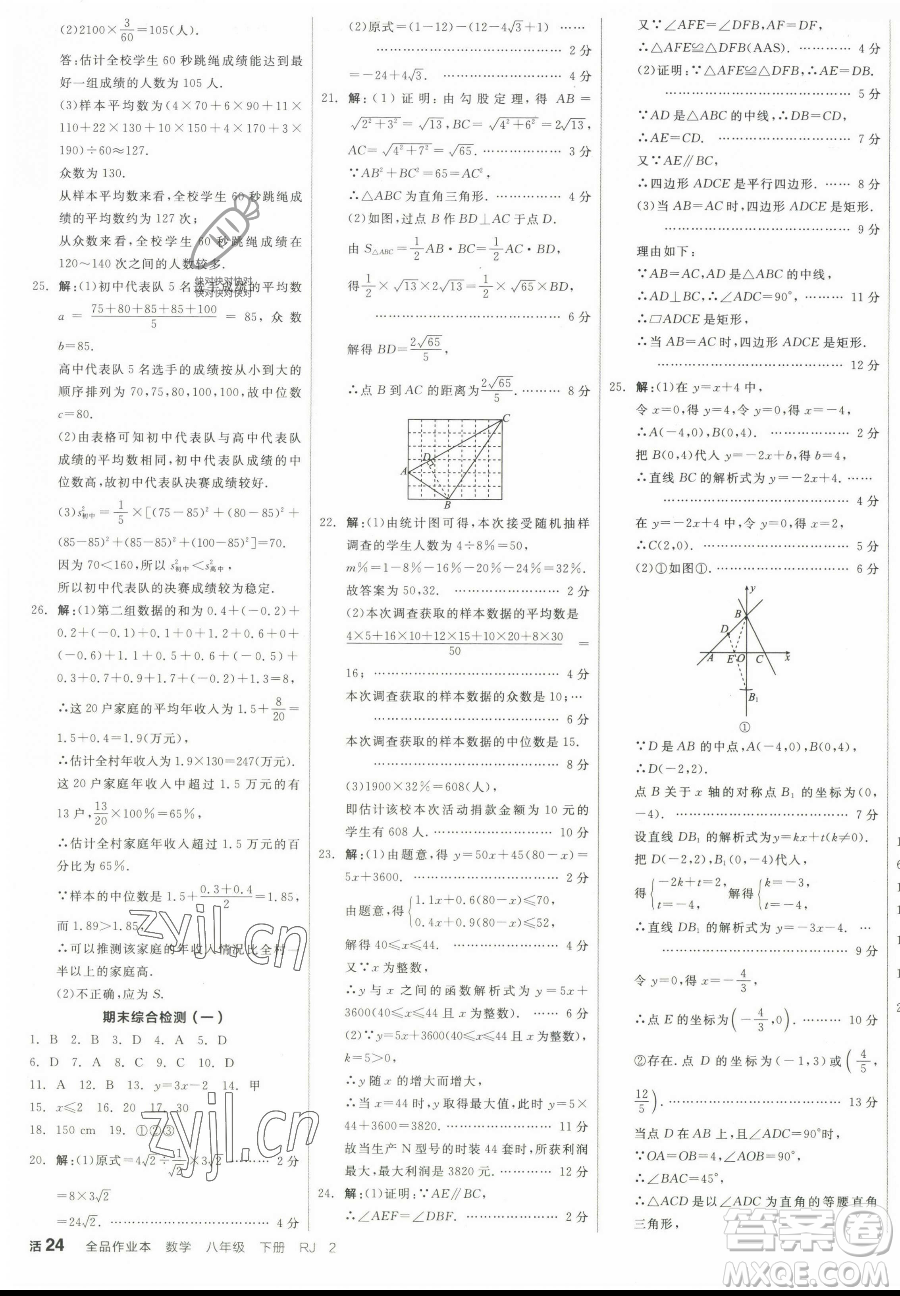 (2)2100×3/60=105(人).
答:估计全校学生 60 秒跳绳成绩能达到最
好一组成绩的人数为 105 人.
(3)样本平均数为(4×70+6×90+18×
110+22×130+10×150+4×170+3×
190)÷60≈127.
众数为 130.
从样本平均数来看,全校学生 60 秒跳绳成
绩的平均数约为 127 次;
从众数来看,全校学生 60 秒跳绳成绩在
120~140 次之间的人数较多.
25. 解:(1)初中代表队 5 名选手成绩的平均数
a=(75+80+85+85+100)/5=85,众数
b=85.
高中代表队 5 名选手的成绩从小到大的
顺序排列为 70,75,80,100,100,故中位数
c=80.
(2)由表格可知初中代表队与高中代表队
成绩的平均数相同,初中代表队成绩的中
位数高,故初中代表队决赛成绩较好.
(3)s²初中=1/5×[(75-85)²+(80-85)²+
(85-85)²+(85-85)²+(100-85)²]=70.
因为 70<160,所以 s²初中<s²高中,
所以初中代表队的决赛成绩较为稳定.
26. 解:(1)第二组数据的和为 0.4+(-0.2)+
0.2+(-0.1)+0.1+0+1.2+0.6+0+
(-0.6)+(-0.3)+0.5+0.3+0.1+
(-0.5)+0.4+0.9+1.5+(-0.2)+
(-0.2)+4.3=8,
∴这 20 户家庭的平均年收入为 1.5+8/20=
1.5+0.4=1.9(万元),
∴估计全村年收入为 1.9×130=247(万元);
这 20 户家庭年收入中超过 1.5 万元的有
13 户,13/20×100%=65%,
∴估计全村家庭年收入超过 1.5 万元的百
分比为 65%.
∵样本的中位数是 1.5+(0.3+0.4)/2=1.85,
而 1.89>1.85,
∴可以推测该家庭的年收入情况比全村一
半以上的家庭高.
(2)不正确,应为 S.
期末综合检测(一)
1. B 2. B 3. D 4. A 5. D
6. D 7. A 8. C 9. C 10. D
11. A 12. B 13. y=3x-2 14. 甲
15. x≤2 16. 20 17. 30
18. 150 cm 19. ①②③
20. 解:(1)原式=4√2÷1/√2×3√2 …… 2 分
=8×3√2
=24√2. …… 4 分
活 24 全品作业本 数学 八年级 下册 RJ 2
(2)原式=(1-12)-(12-4√3+1)
…… 2 分
=-24+4√3. …… 4 分
21. 解:(1)证明:由勾股定理,得 AB=
√(2²+3²)=√13,BC=√(4²+6²)=2√13,
AC=√(4²+7²)=√65. …… 3 分
∵AB²+BC²=65=AC²,
∴△ABC 为直角三角形. …… 4 分
(2)如图,过点 B 作 BD⊥AC 于点 D.
由 S△ABC=1/2AB·BC=1/2AC·BD,
得1/2×√13×2√13=1/2×√65×BD,
…… 6 分
解得 BD=2√65/5,
∴点 B 到 AC 的距离为2√65/5. …… 8 分
C
D
A
B
22. 解:(1)由统计图可得,本次接受随机抽样
调查的学生人数为 4÷8%=50,
m%=1-8%-20%-24%-16%=32%.
故答案为 50,32. …… 2 分
(2)本次调查获取的样本数据的平均数是
(4×5+16×10+12×15+10×20+8×30)/50=
16; …… 4 分
本次调查获取的样本数据的众数是 10;……
…… 6 分
本次调查获取的样本数据的中位数是 15.
…… 8 分
(3)1900×32%=608(人),
即估计该校本次活动捐款金额为 10 元的
学生有 608 人. …… 10 分
23. 解:(1)由题意,得 y=50x+45(80-x)=
5x+3600. …… 2 分
由题意,得{1.1x+0.6(80-x)≤70, 0.4x+0.9(80-x)≤52,
解得 40≤x≤44. …… 4 分
又∵x 为整数,
∴y 与 x 之间的函数解析式为 y=5x+
3600(40≤x≤44 且 x 为整数). …… 6 分
(2)∵y=5x+3600(40≤x≤44 且 x 为整数),
k=5>0,
∴y 随 x 的增大而增大,
∴当 x=44 时,y 有最大值,最大值为 y=5×
44+3600=3820.
故当生产 N 型号的时装 44 套时,所获利润
最大,最大利润是 3820 元. …… 12 分
24. 解:(1)证明:∵AE∥BC,
∴∠AEF=∠DBF. …… 2 分
又∵∠AFE=∠DFB,AF=DF,
∴△AFE≌△DFB(AAS). …… 4 分
(2)证明:∵△AFE≌△DFB,∴AE=DB.
…… 5 分
∵AD 是△ABC 的中线,∴DB=CD,
∴AE=CD. …… 7 分
又∵AE∥BC,
∴四边形 ADCE 是平行四边形. …… 8 分
(3)当 AB=AC 时,四边形 ADCE 是矩形.
…… 9 分
理由如下:
∵AB=AC,AD 是△ABC 的中线,
∴AD⊥BC,∴∠ADC=90°, …… 11 分
∴▱ADCE 是矩形,
∴当 AB=AC 时,四边形 ADCE 是矩形.
…… 12 分
25. 解:(1)在 y=x+4 中,
令 x=0,得 y=4,令 y=0,得 x=-4,
∴A(-4,0),B(0,4). …… 2 分
把 B(0,4)代入 y=-2x+b,得 b=4,
∴直线 BC 的解析式为 y=-2x+4. …… 4 分
在 y=-2x+4 中,令 y=0,得 x=2,
∴C(2,0). …… 5 分
(2)①如图①. …… 6 分
y
B
D
A E O C x
B₁
①
∵D 是 AB 的中点,A(-4,0),B(0,4),
∴D(-2,2).
点 B 关于 x 轴的对称点 B₁ 的坐标为(0,
-4). …… 7 分
设直线 DB₁ 的解析式为 y=kx+t(k≠0).
把 D(-2,2),B₁(0,-4)代入,
得{-2k+t=2, t=-4, 解得{k=-3, t=-4,
∴直线 DB₁ 的解析式为 y=-3x-4. ……
…… 9 分
令 y=0,得 x=-4/3,
∴点 E 的坐标为(-4/3,0). …… 10 分
②存在. 点 D 的坐标为(-1,3)或(4/5,
12/5). …… 13 分
当点 D 在线段 AB 上时,
∵OA=OB=4,∠AOB=90°,
∴∠BAC=45°,
∴△ACD 是以 AC 为直角的等腰直角
三角形,
快对快对快对
快对快对快对
zyjl.cn
zyjl.cn
MXQE.COM